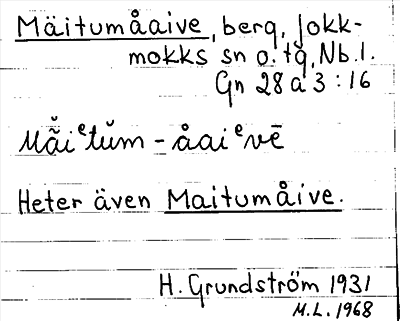 Mäitumåaive, berg, Jokk-
mokks sn o. tg, Nb. l.
Gn 28 a 3 : 16
Mä̆iᵉtŭm - åaiᵉvē
Heter även Maitumåive.
H. Grundström 1931
M.L. 1968